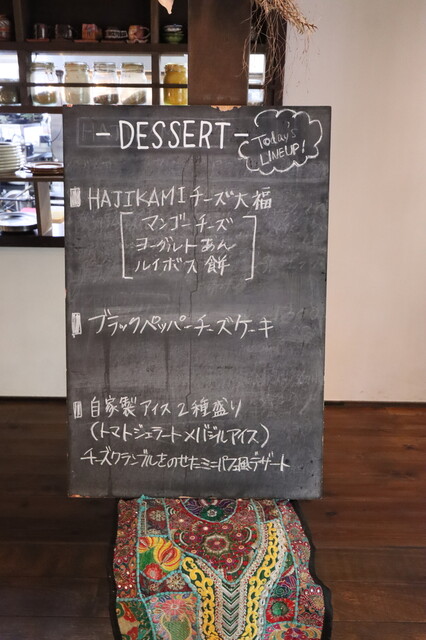 - DESSERT -
Today's
LINEUP!
HAJIKAMIチーズ大福
マンゴーチーズ
ヨーグルトあん
ルイボス餅
ブラックペッパーチーズケーキ
自家製アイス2種盛り
(トマトジェラート×バジルアイス)
チーズクランブルをのせたミニパフェ風デザート